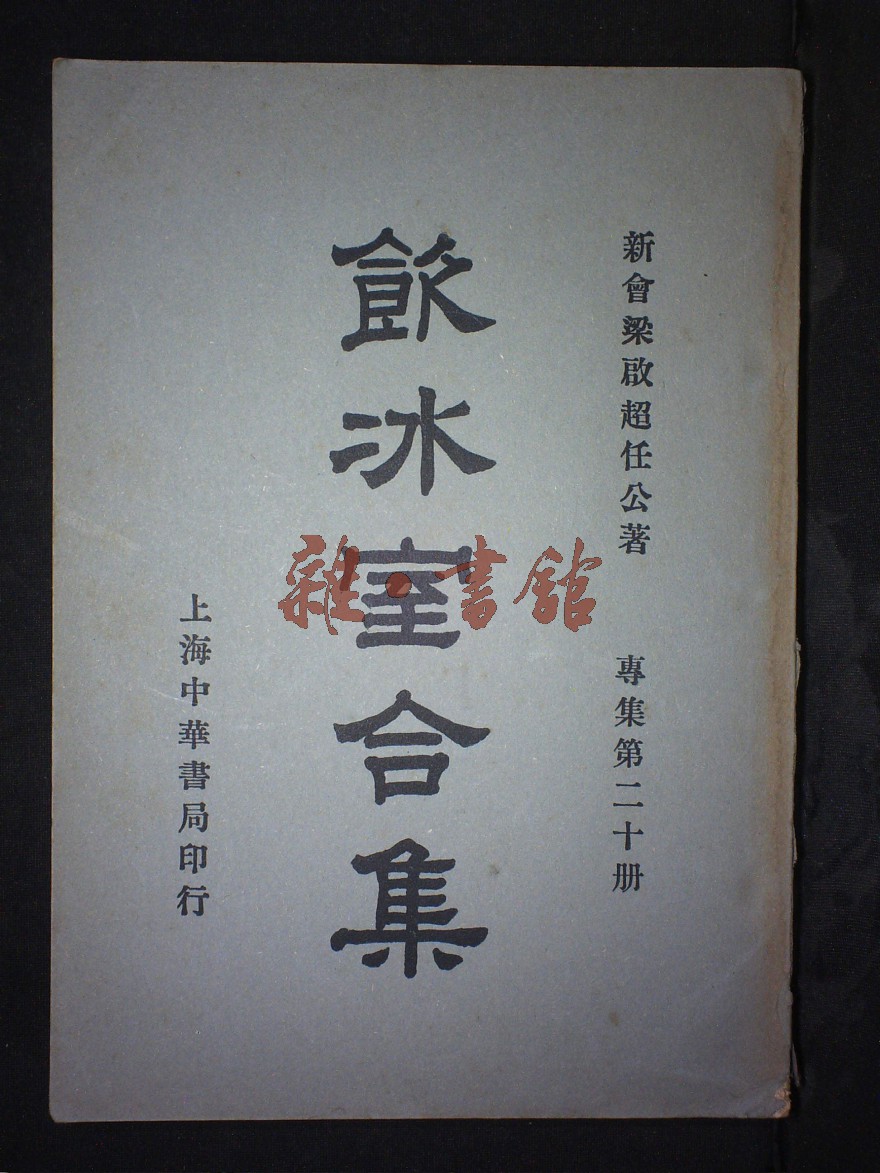 新會梁啟超任公著
專集第二十册
飲冰室合集
上海中華書局印行
雜·書館